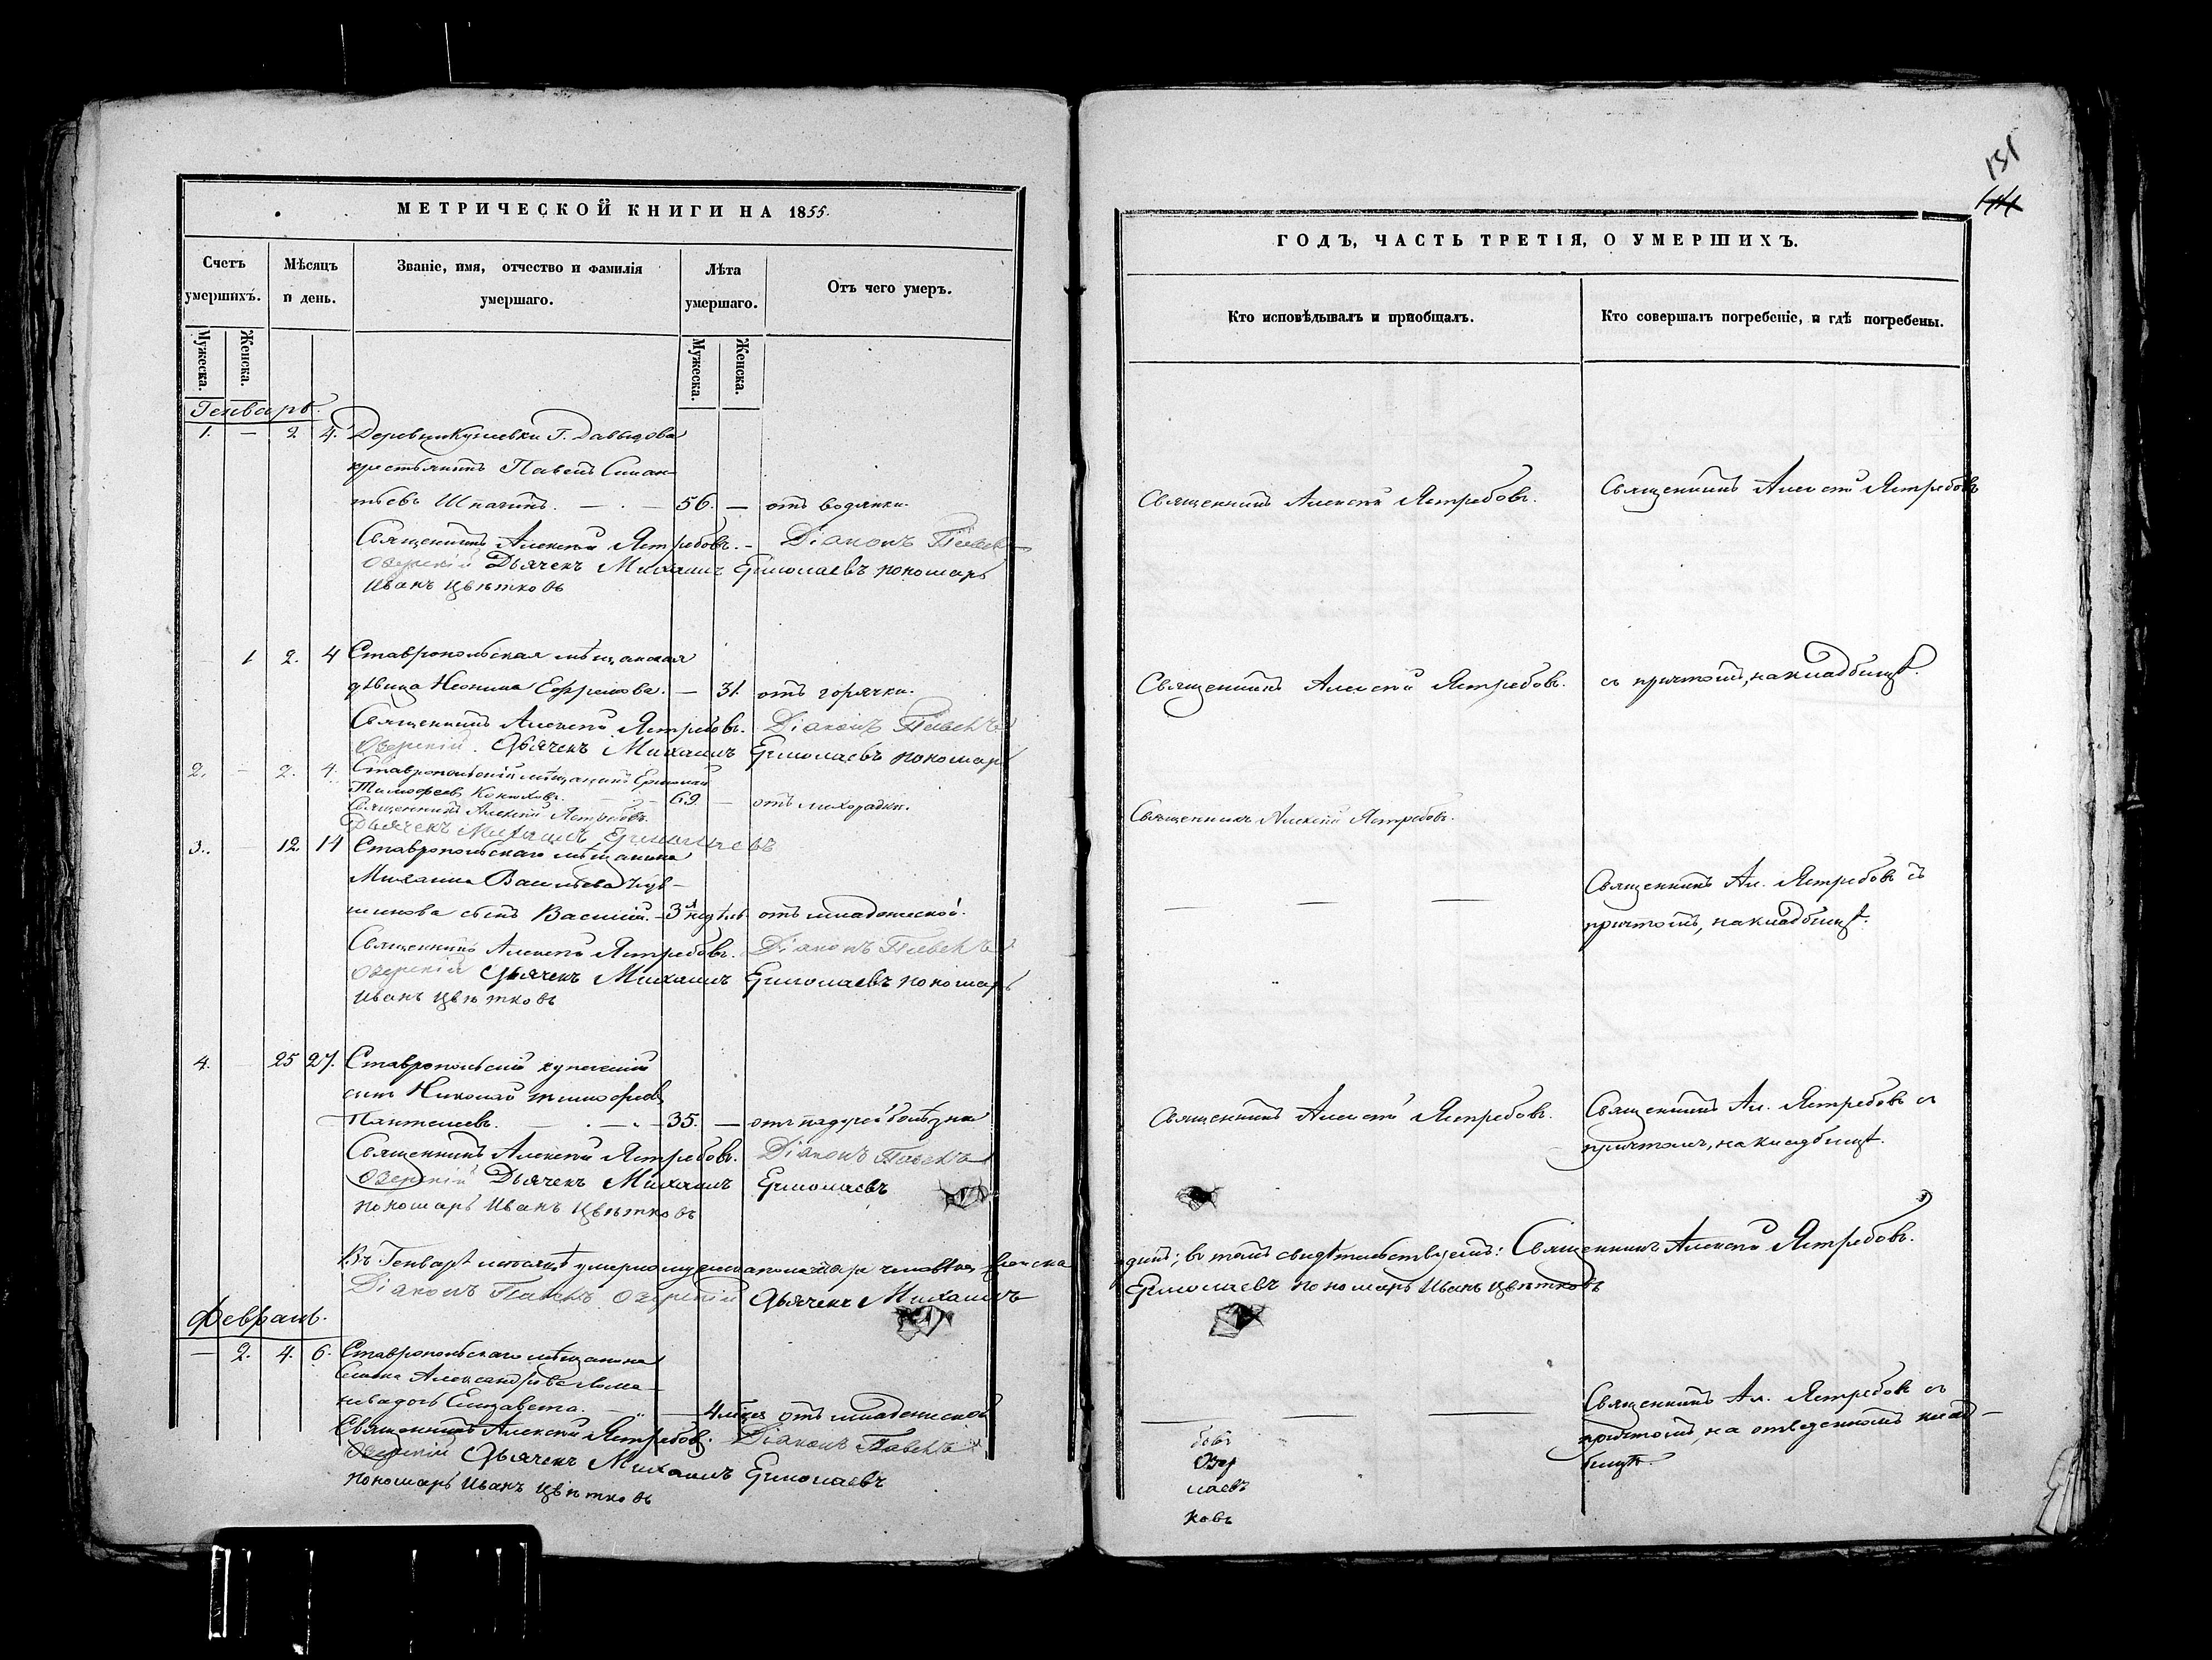 МЕТРИЧЕСКОЙ КНИГИ НА 1855.
Счетъ умершихъ.
Мѣсяцъ и день.
Званіе, имя, отчество и фамилія умершаго.
Лѣта умершаго.
Отъ чего умеръ.
Мужеска.
Женска.
Мужеска.
Женска.
Генварь.
1. — 2 4. Деревни Г. Давыдова
крестьянинъ Павелъ
56. — отъ водянки.
Священникъ Алексѣй Ястребовъ. — Діаконъ Павелъ
Озерскій Дьячекъ Михаилъ Ермолаевъ пономарь
Иванъ Цвѣтковъ
1 2. 4 Ставропольская мѣщанская
дѣвица Ефремова. — 31. отъ горячки.
Священникъ Алексѣй Ястребовъ. Діаконъ Павелъ
Озерскій. Дьячекъ Михаилъ Ермолаевъ пономарь
2. — 2. 4. Ставропольскій мѣщанинъ Ермолай
Тимофеевъ Конюховъ. — 69. — отъ лихорадки.
Священникъ Алексѣй Ястребовъ.
Дьячекъ Михаилъ Ермолаевъ
3. 12. 14 Ставропольскаго мѣщанина
Михаила Васильева
сынъ Василій. — 3 недѣль отъ младенческой.
Священникъ Алексѣй Ястребовъ. Діаконъ Павелъ
Озерскій Дьячекъ Михаилъ Ермолаевъ пономарь
Иванъ Цвѣтковъ
4. 25 27. Ставропольскій купеческій
сынъ Николай Тимофеевъ
Пантелеевъ. — 35. — отъ падучей болѣзни
Священникъ Алексѣй Ястребовъ. Діаконъ Павелъ
Озерскій Дьячекъ Михаилъ Ермолаевъ
пономарь Иванъ Цвѣтковъ
Въ Генварѣ мѣсяцѣ умерло мужеска пола четыре человѣка, женска
Діаконъ Павелъ Озерскій Дьячекъ Михаилъ
Февраль.
— 2. 4. 6. Ставропольскаго мѣщанина
Александрова
дочь Елизавета. — 4 мѣсяц отъ младенческой
Священникъ Алексѣй Ястребовъ. Діаконъ Павелъ
Озерскій Дьячекъ Михаилъ Ермолаевъ
пономарь Иванъ Цвѣтковъ
151
ГОДЪ, ЧАСТЬ ТРЕТІЯ, О УМЕРШИХЪ.
Кто исповѣдывалъ и пріобщалъ.
Кто совершалъ погребеніе, и гдѣ погребены.
Священникъ Алексѣй Ястребовъ.
Священникъ Алексѣй Ястребовъ
Священникъ Алексѣй Ястребовъ.
съ причтомъ, на кладбищѣ.
Священникъ Алексѣй Ястребовъ.
— — —
Священникъ Ал. Ястребовъ съ
причтомъ, на кладбищѣ.
Священникъ Алексѣй Ястребовъ.
Священникъ Ал. Ястребовъ съ
причтомъ, на кладбищѣ.
въ томъ свидѣтельствуемъ: Священникъ Алексѣй Ястребовъ.
Ермолаевъ пономарь Иванъ Цвѣтковъ
— — —
Священникъ Ал. Ястребовъ съ
причтомъ, на отведенномъ клад-
бищѣ.
бовъ
Озер
лаевъ
ковъ